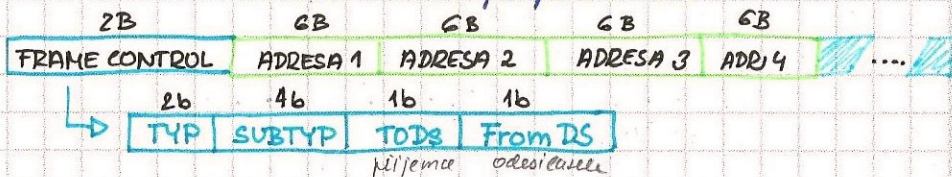 2B 6B 6B 6B 6B
FRAME CONTROL ADRESA 1 ADRESA 2 ADRESA 3 ADR. 4 ....
2b 4b 1b 1b
TYP SUBTYP TODS From DS
příjemce odesílatele